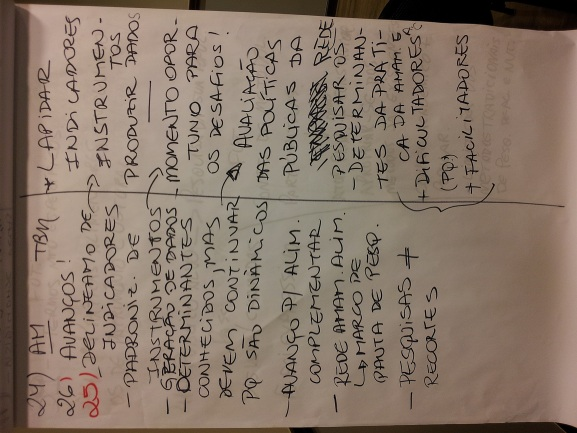 24) AM TBM
26) AVANÇOS!
25) - DELINEAMO DE
INDICADORES
- PADRONIZ. DE
INSTRUMENTOS
- GERAÇÃO DE DADOS
- DETERMINANTES
CONHECIDOS, MAS
DEVEM CONTINUAR
PQ SÃO DINÂMICOS
- AVANÇO P/ ALIM.
COMPLEMENTAR
- REDE AMAM. ALIM.
↳ MARCO DE
PAUTA DE PESQ.
- PESQUISAS ≠
RECORTES
+ LAPIDAR
INDICADORES
INSTRUMEN-
TOS
PRODUZIR DADOS
- MOMENTO OPOR-
TUNO PARA
OS DESAFIOS!
AVALIAÇÃO
DAS POLÍTICAS
PÚBLICAS DA
REDE
PESQUISAR OS
- DETERMINAN-
TES DA PRÁTI-
CA DA AMAM. E
+ DIFICULTADORES
(PQ)
+ FACILITADORES